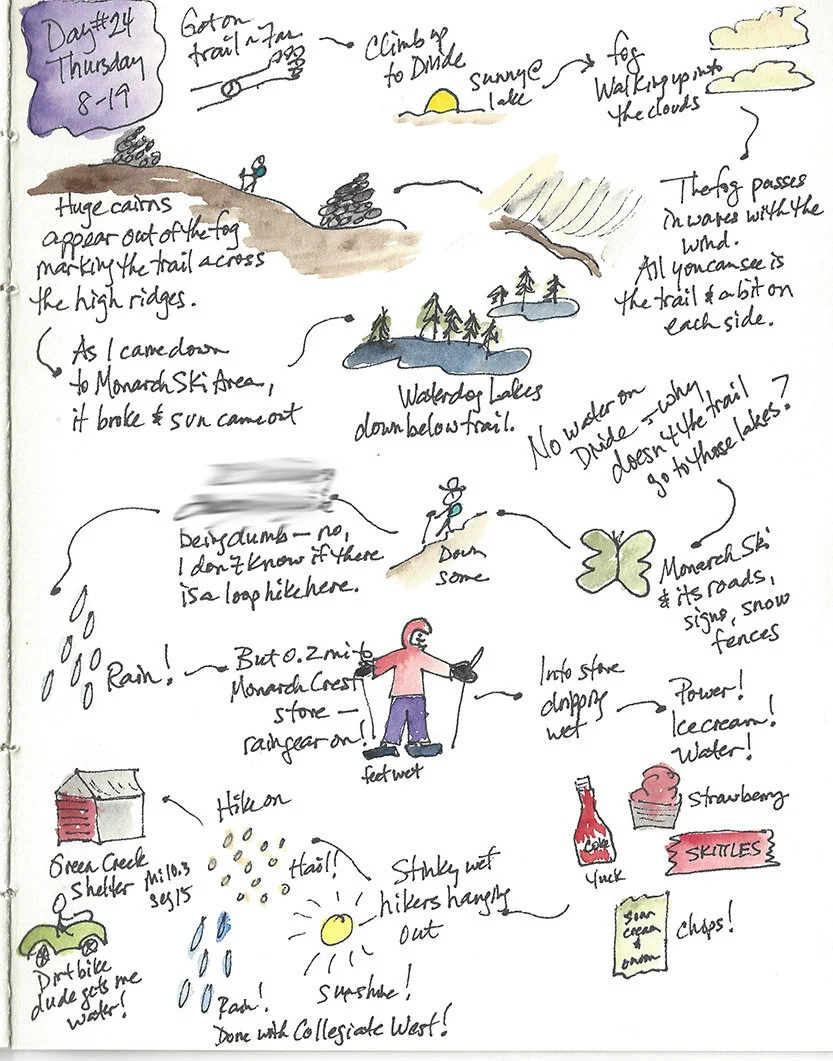 Day #24
Thursday
8-19
Got on
trail ~ 7am
Climb up
to Divide
sunny@
lake
fog
Walking up into
the clouds
The fog passes
in waves with the
wind.
All you can see is
the trail & a bit on
each side.
Huge cairns
appear out of the fog
marking the trail across
the high ridges.
As I came down
to Monarch Ski Area,
it broke & sun came out
Waterdog Lakes
down below trail.
No water on
Divide - why
doesn't the trail
go to those lakes?
Monarch Ski
& its roads,
signs, snow
fences
Down
some
being dumb - no,
I don't know if there
is a loop hike here.
Rain!
But 0.2 mi to
Monarch Crest
store -
raingear on!
feet wet
Into store
dripping
wet
Power!
Ice cream!
Water!
Strawberry
SKITTLES
Coke
Yuck
sour
cream
&
onion
chips!
Stinky wet
hikers hanging
out
Sunshine!
Hail!
Rain!
Hike on
Green Creek
Shelter
Mi 10.3
seg 15
Dirt bike
dude gets me
water!
Done with Collegiate West!